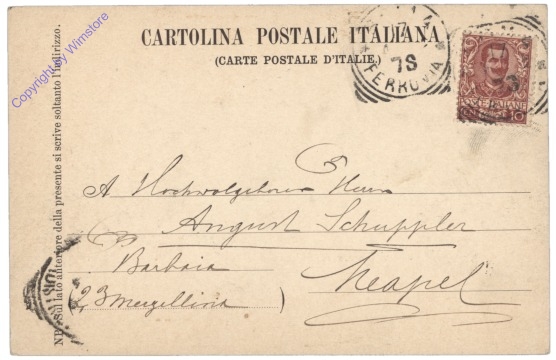 Copyright by Wimstore
CARTOLINA POSTALE ITALIANA
(CARTE POSTALE D'ITALIE)
FERROVIA
POSTE ITALIANE
10
NB. Sul lato anteriore della presente si scrive soltanto l'indirizzo.
A Hochwolgeboren Herrn
August Schuppler
Barbaia
(2,3 Mergellina)
Neapel